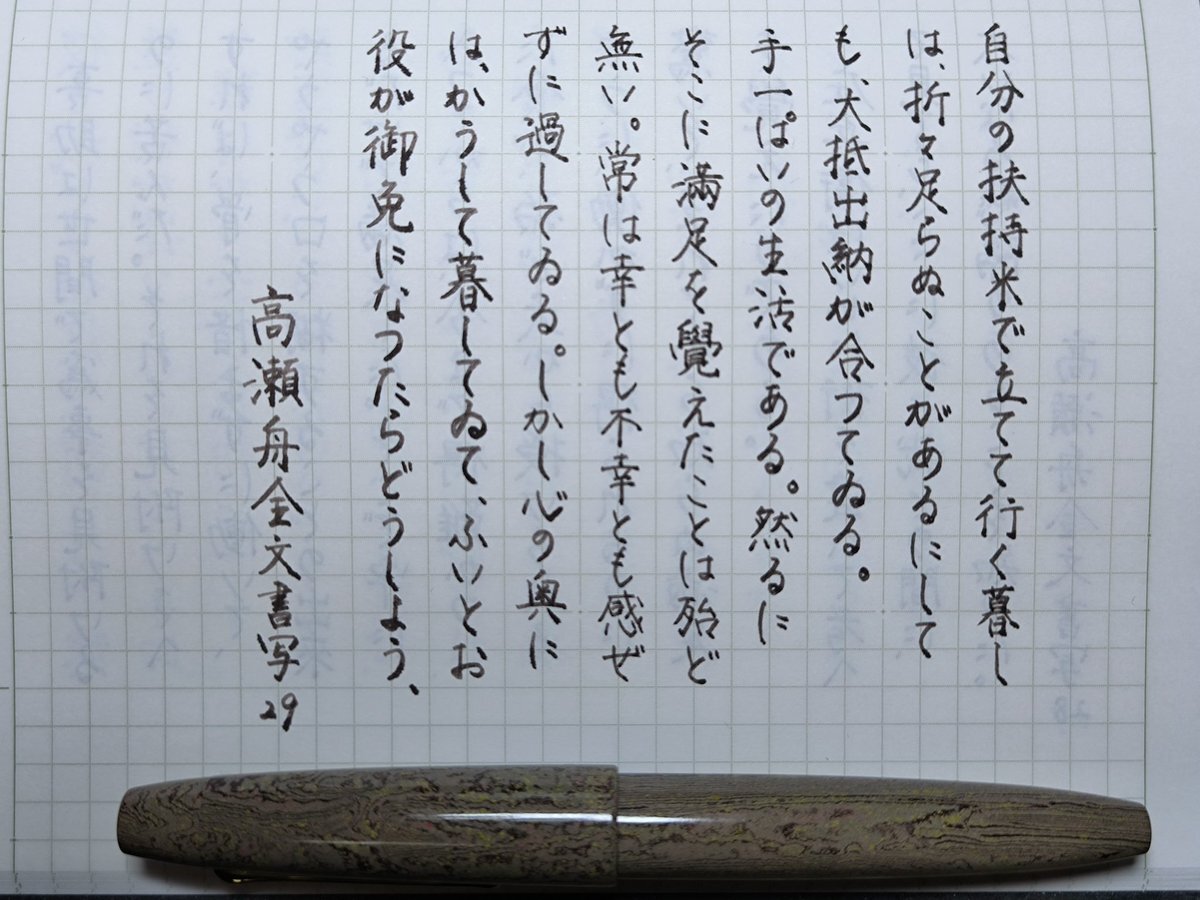 自分の扶持米で立てて行く暮し
は、折々足らぬことがあるにして
も、大抵出納が合つてゐる。
手一ぱいの生活である。然るに
そこに満足を覺えたことは殆ど
無い。常は幸とも不幸とも感ぜ
ずに過してゐる。しかし心の奥に
は、かうして暮してゐて、ふいとお
役が御免になつたらどうしよう、
高瀬舟全文書写29